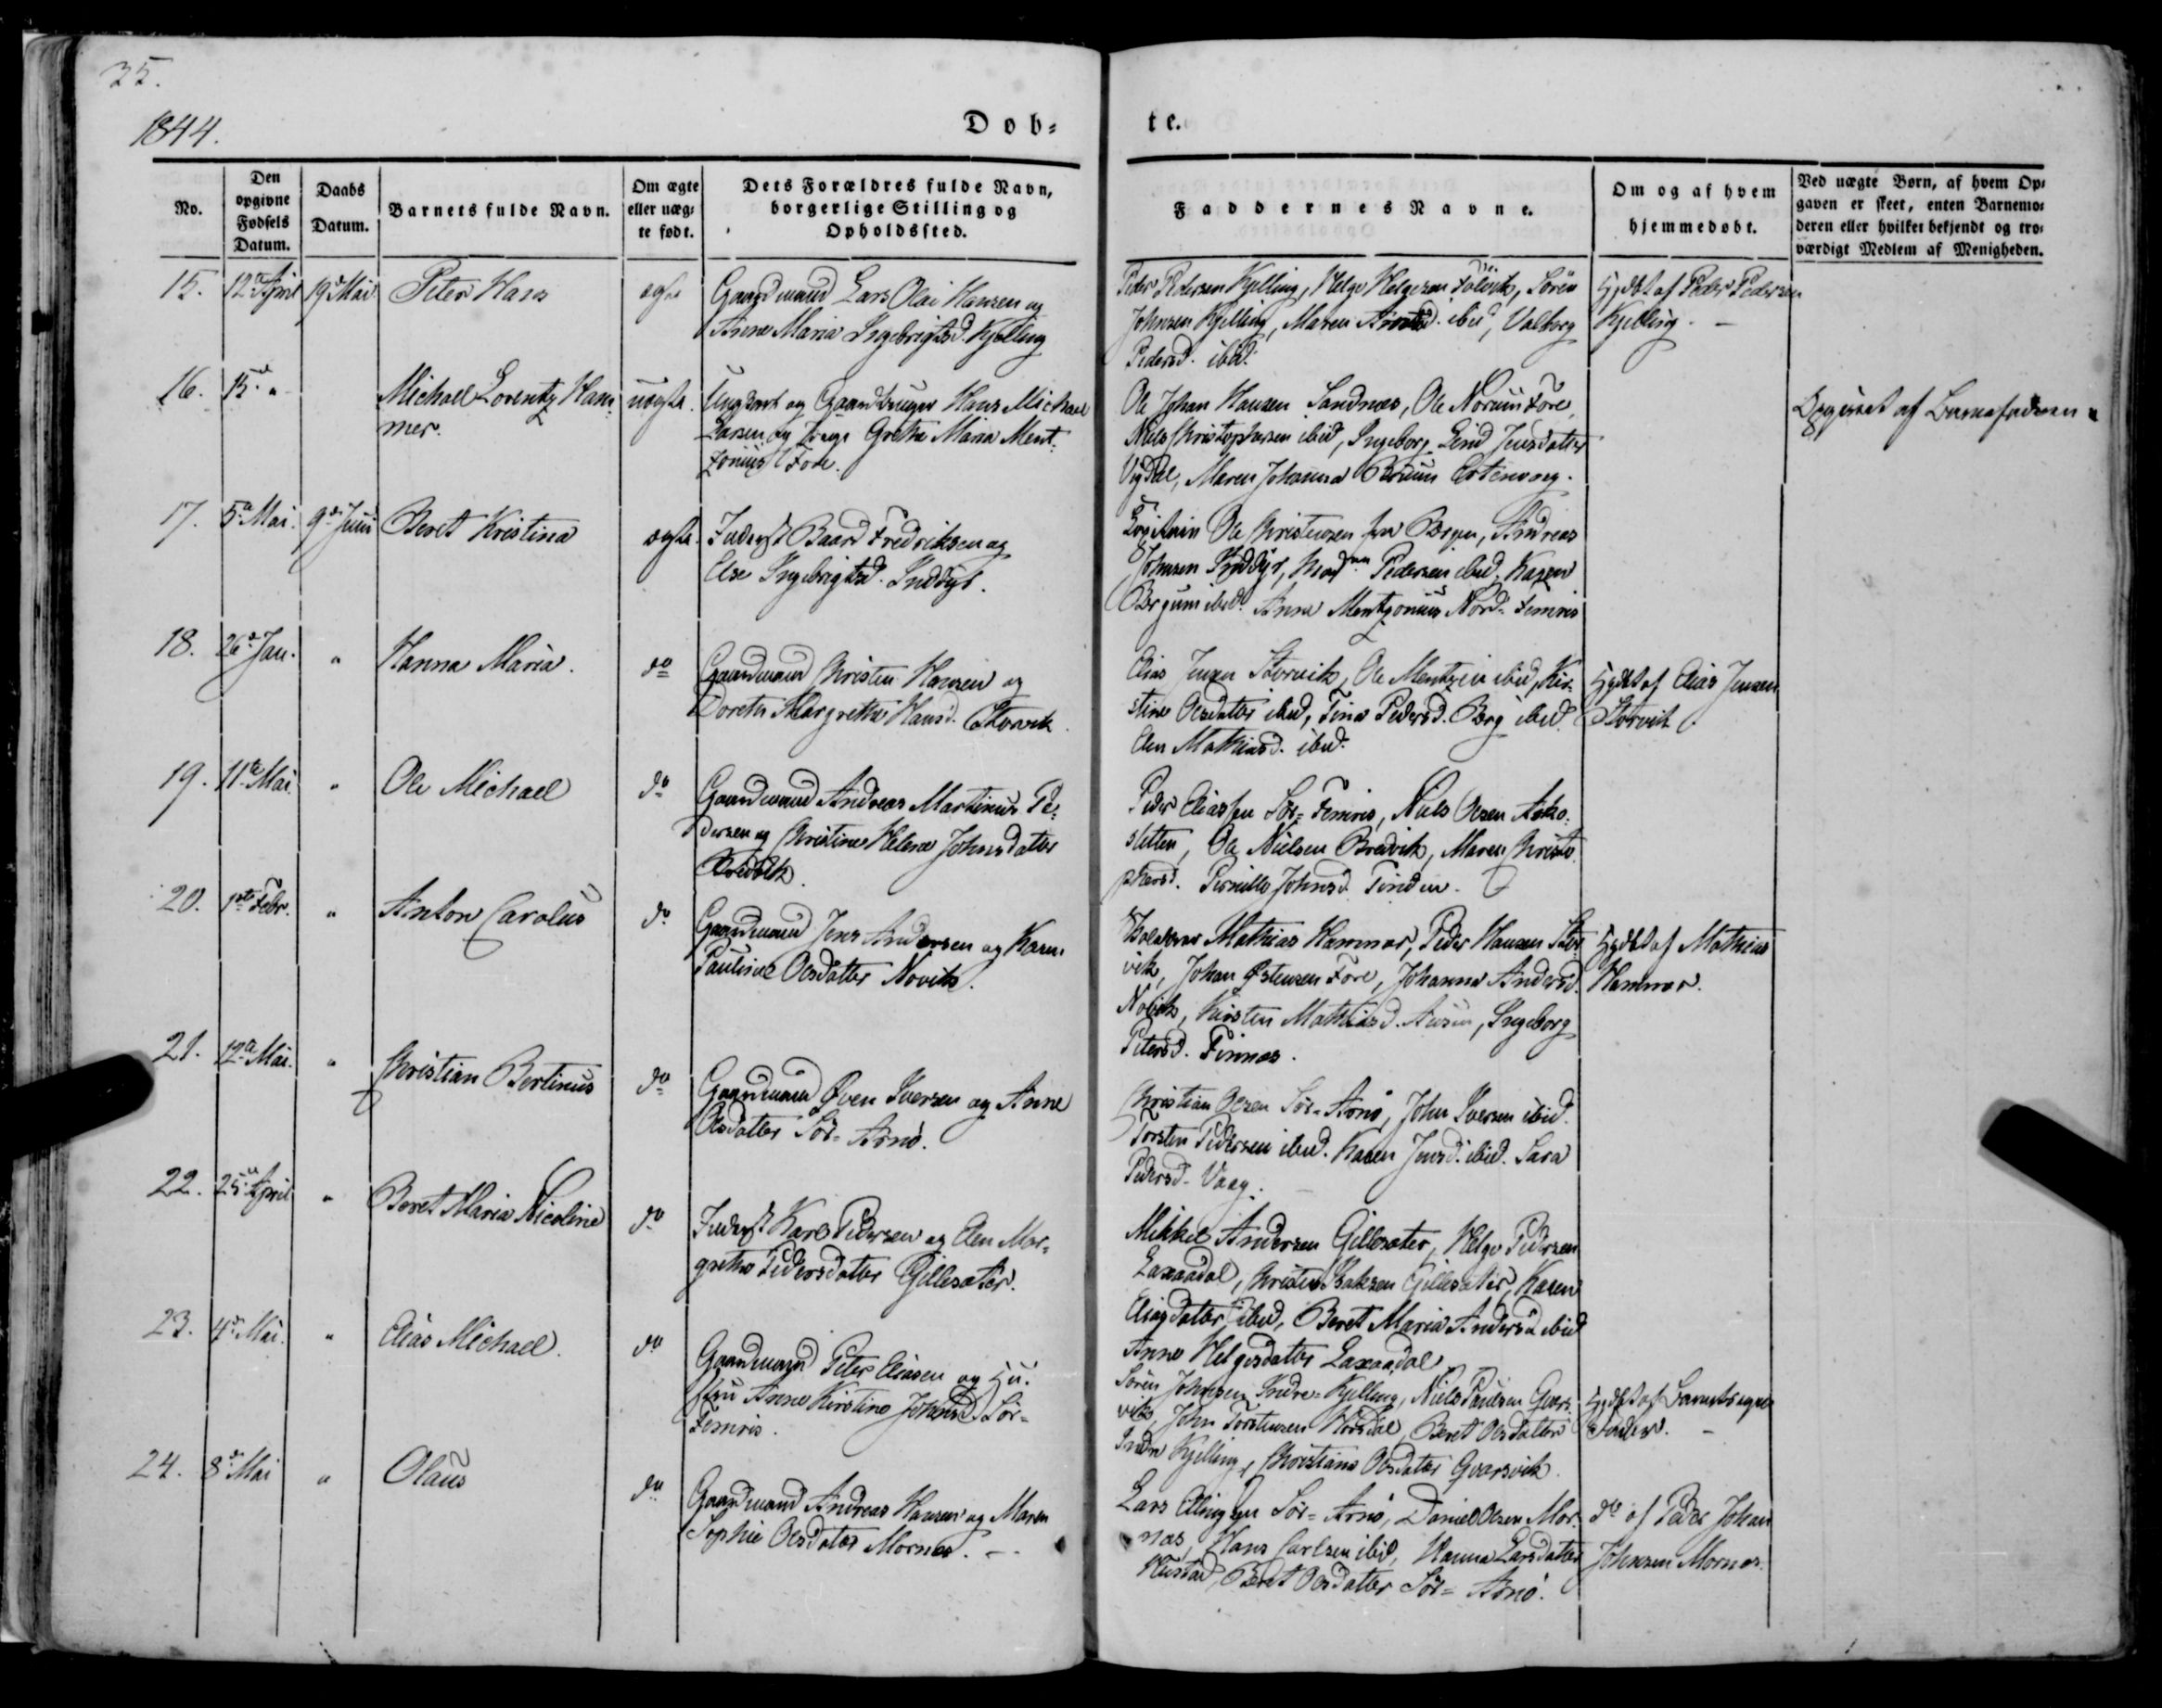 35.
1844.
Døb-
te.
No.
Den opgivne Fødsels Datum.
Daabs Datum.
Barnets fulde Navn.
Om ægte eller uægte født.
Dets Forældres fulde Navn, borgerlige Stilling og Opholdssted.
Faddernes Navne.
Om og af hvem hjemmedøbt.
Ved uægte Børn, af hvem Opgaven er skeet, enten Barnemoderen eller hvilket bekjendt og troværdigt Medlem af Menigheden.
15. 12te April 19de Mai Peter Hans ægte
Gaardmand Lars Olai Hansen og
Anne Maria Ingebrigtsd. Kjelling
Peder Pedersen Kjelling, Helge Helgesen, Sören
Johnsen Kjelling, Maren ibid, Valborg
Pedersd. ibid.
Hjdbt af Peder Pedersen
Kjelling. -
16. 15de " Michael Lorentz Ham-
mer.
uægte.
Ungkarl og Gaardbruger Hans Michael
Larsen og Pige Grethe Maria Ment-
zonius Fore.
Ole Johan Hansen Sandnæs, Ole Fore,
Niels Christophersen ibid, Ingeborg Lind Jensdatter
Vigdal, Maren Johanna
Opgivet af Barnefaderen.
17. 5te Mai. 9de Juni Beret Kristina ægte.
Inderst Baard Fredriksen og
Else Ingebrigtsd. Inddyr.
Ole Christensen fra Bergen, Andreas
Johnsen Inddyr, Pedersen ibid, Karen
ibid. Anne Mentzonius Nord-Femris
18. 26de Jan. " Hanna Maria. do
Gaardmand Christen Hansen og
Dorethe Margrethe Hansd. Storvik.
Elias Jensen Storvik, Ole Mentzen ibid, Kir-
stine Olsdatter ibid, Tina Pedersd. Berg ibid.
Elen Mathiasd. ibid.
Hjdbt af Elias Jensen
Storvik.
19. 11te Mai. " Ole Michael do
Gaardmand Andreas Martinus Pe-
dersen og Christine Helena Johnsdatter
Bredvik.
Peder Eliassen Sör-Femris, Niels Olsen Asko-
sletten, Ole Nielsen Bredvik, Maren Christo-
phersd. Pernille Johnsd. Tinden.
20. 1ste Febr. " Anton Carolus do
Gaardmand Jens Andersen og Karen
Pauline Olsdatter Novik.
Mathias Hammer, Peder Hansen Stor-
vik, Johan Østensen Fore, Johanna Andersd.
Novik, Kirsten Mathiasd. Ausen, Ingeborg
Petersd. Finnes.
Hjdbt af Mathias
Hammer.
21. 12te Mai. " Christian Bertinus do
Gaardmand Iversen og Anne
Olsdatter Sör-Arnö.
Christian Olsen Sör-Arnö, John Iversen ibid.
Torsten Pedersen ibid. Karen Jensd. ibid. Sara
Pedersd. Vaag.
22. 25de April " Beret Maria Nicoline do
Inderst Karl Pedersen og Elen Mar-
grethe Pedersdatter Gillesæter.
Mikkel Andersen Gillesæter, Helge Pedersen
Laxaadal, Christen Isaksen Gillesæter, Karen
Eliasdatter ibid, Beret Maria Andersd. ibid
Anne Helgesdatter Laxaadal
23. 4de Mai. " Elias Michael. do
Gaardmand Peter Eliasen og Hu-
stru Anne Kirstine Johnsd. Sör-
Femris.
Sören Johnsen Indre-Kjelling, Niels Paulsen Gvars-
vik, John Torstensen Hörsdal, Beret Olsdatter
Indre Kjelling, Christiana Olsdatter Gvarsvik.
Hjdbt af Barnets egen
Fader. -
24. 8de Mai " Olaus do
Gaardmand Andreas Hansen og Maren
Sophie Olsdatter Mornes. -
Lars Ellingsen Sör-Arnö, Daniel Olsen Mor-
næs, Hans Carlsen ibid, Hanna Larsdatter
Beret Olsdatter Sör-Arnö.
do af Peder Johan
Johnsen Mornes.